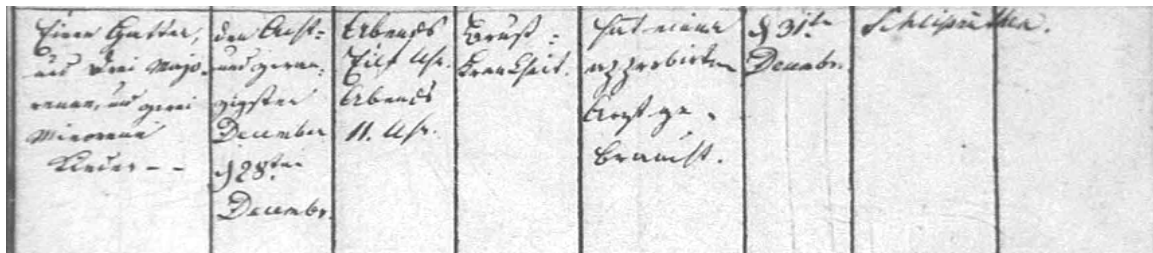 Einen Gatten,
und drei majo-
rennen, und zwei
Minorenne
Kinder - -
den Acht-
und zwan-
zigsten
December
d 28sten
Decembr.
Abends
Eilf Uhr.
Abends
11. Uhr.
Brust-
krankheit.
hat einen
approbirten
Arzt ge-
braucht.
d 31te
Decembr.